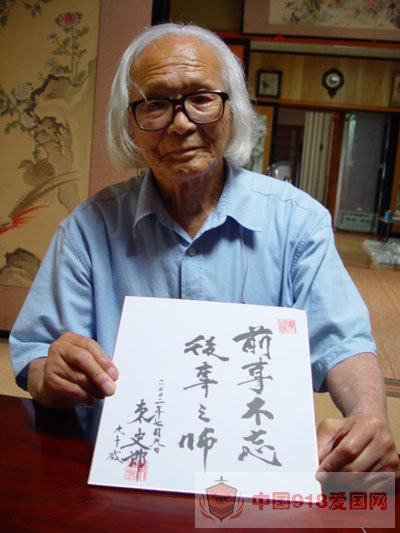 前事不忘
後事之師
二〇〇二年七月九日
東史郎
九十歳
中国918爱国网